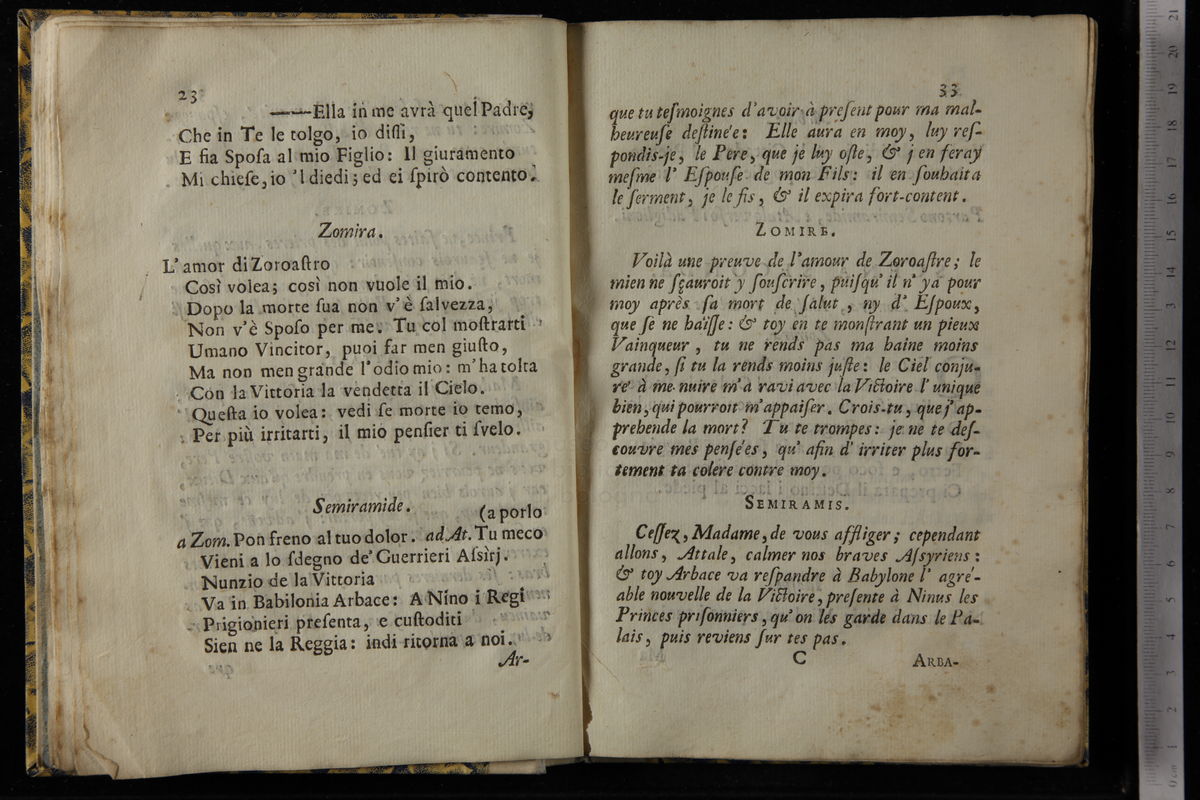 23
——Ella in me avrà quel Padre,
Che in Te le tolgo, io diſſi,
E fia Spoſa al mio Figlio: Il giuramento
Mi chieſe, io 'l diedi; ed ei ſpirò contento.
Zomira.
L' amor di Zoroaſtro
Così volea; così non vuole il mio.
Dopo la morte ſua non v' è ſalvezza,
Non v'è Spoſo per me. Tu col moſtrarti
Umano Vincitor, puoi far men giuſto,
Ma non men grande l'odio mio: m'ha tolta
Con la Vittoria la vendetta il Cielo.
Queſta io volea: vedi ſe morte io temo,
Per più irritarti, il mio penſier ti ſvelo.
Semiramide.
(a porlo
a Zom. Pon freno al tuo dolor. ad At. Tu meco
Vieni a lo ſdegno de' Guerrieri Aſsìrj.
Nunzio de la Vittoria
Va in Babilonia Arbace: A Nino i Regi
Prigionieri preſenta, e cuſtoditi
Sien ne la Reggia: indi ritorna a noi.
Ar-
33
que tu teſmoignes d'avoir à preſent pour ma mal-
heureuſe deſtinée: Elle aura en moy, luy reſ-
pondis-je, le Pere, que je luy oſte, & j en feray
meſme l' Eſpouſe de mon Fils: il en ſouhaita
le ſerment, je le fis, & il expira fort-content.
ZOMIRE.
Voilà une preuve de l'amour de Zoroaſtre; le
mien ne ſçauroit y ſouſcrire, puiſqu' il n' ya pour
moy après ſa mort de ſalut, ny d' Eſpoux,
que ſe ne haïſſe: & toy en te monſtrant un pieux
Vainqueur, tu ne rends pas ma haine moins
grande, ſi tu la rends moins juſte: le Ciel conju-
ré à me nuire m'a ravi avec la Victoire l' unique
bien, qui pourroit m'appaiſer. Crois-tu, que j' ap-
prehende la mort? Tu te trompes: je ne te deſ-
couvre mes penſées, qu' afin d' irriter plus for-
tement ta colere contre moy.
SEMIRAMIS.
Ceſſez, Madame, de vous affliger; cependant
allons, Attale, calmer nos braves Aſsyriens:
& toy Arbace va reſpandre à Babylone l' agré-
able nouvelle de la Victoire, preſente à Ninus les
Princes priſonniers, qu' on les garde dans le Pa-
lais, puis reviens ſur tes pas.
C ARBA-